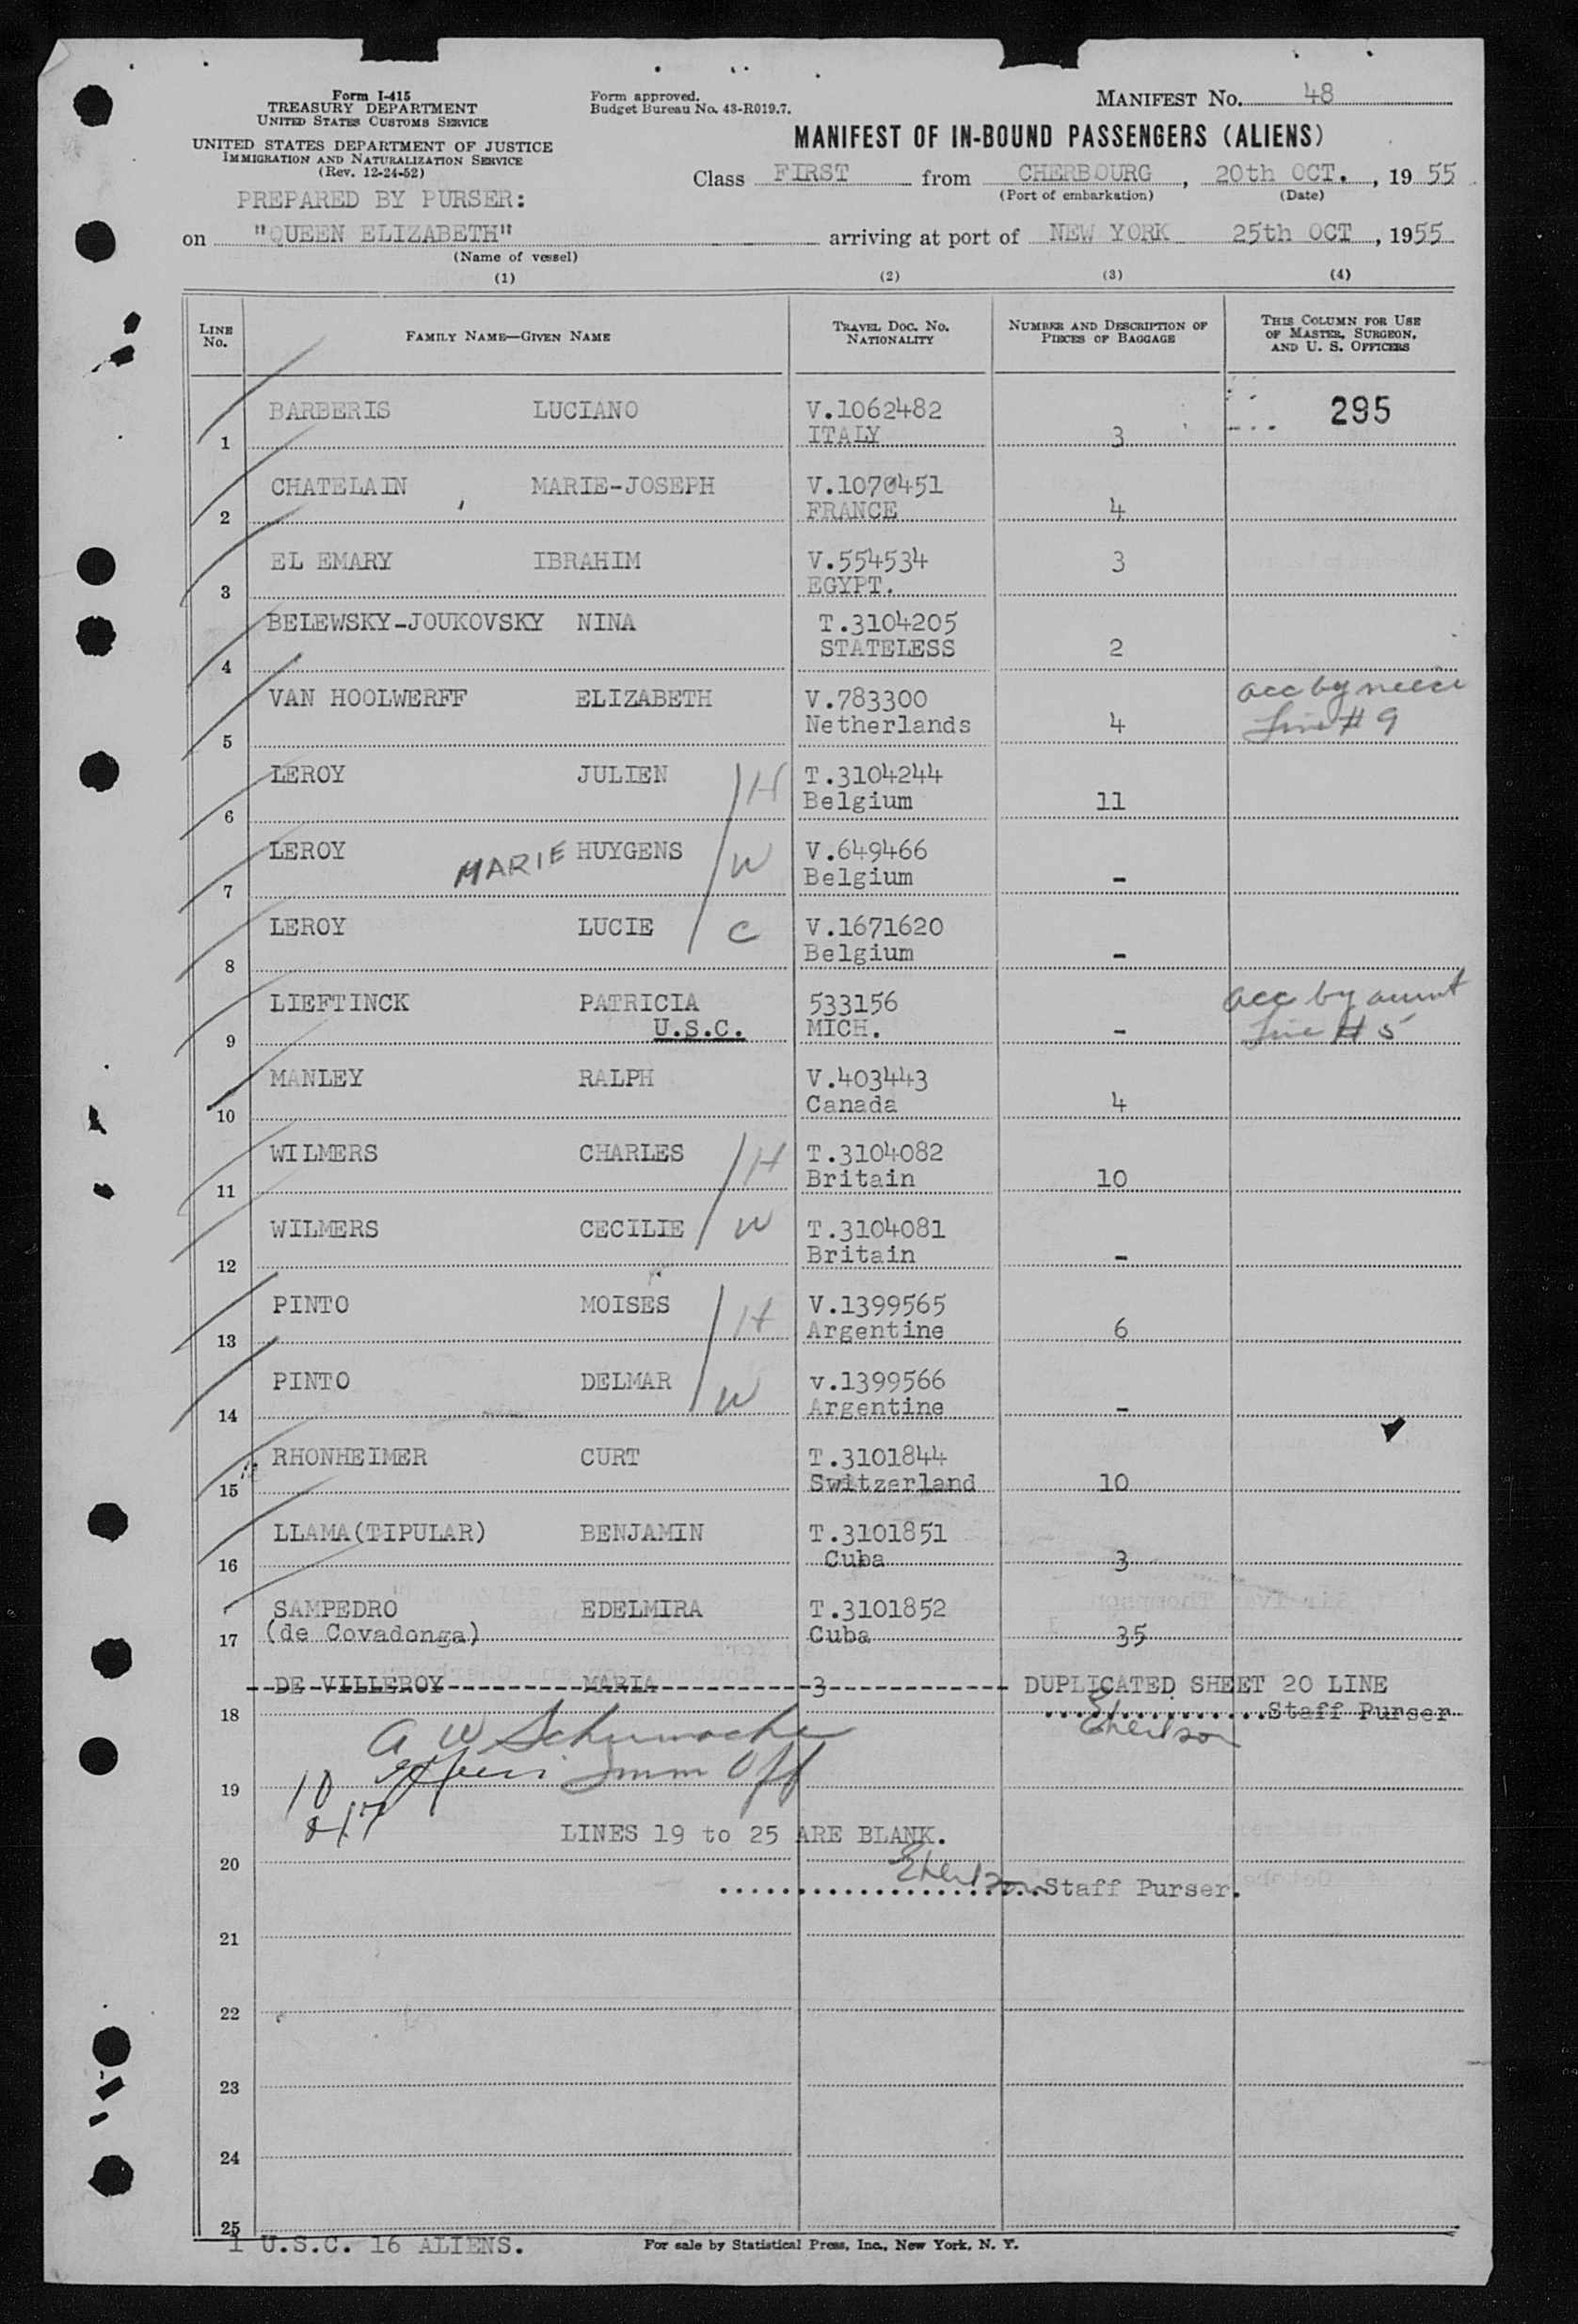 Form I-415
TREASURY DEPARTMENT
UNITED STATES CUSTOMS SERVICE
UNITED STATES DEPARTMENT OF JUSTICE
IMMIGRATION AND NATURALIZATION SERVICE
(Rev. 12-24-52)
Form approved.
Budget Bureau No. 43-R019.7.
MANIFEST NO. 48
MANIFEST OF IN-BOUND PASSENGERS (ALIENS)
Class FIRST from CHERBOURG, 20th OCT., 1955
(Port of embarkation) (Date)
PREPARED BY PURSER:
on "QUEEN ELIZABETH" arriving at port of NEW YORK 25th OCT, 1955
(Name of vessel)
(1) (2) (3) (4)
LINE NO. FAMILY NAME—GIVEN NAME TRAVEL DOC. NO. NATIONALITY NUMBER AND DESCRIPTION OF PIECES OF BAGGAGE THIS COLUMN FOR USE OF MASTER, SURGEON, AND U. S. OFFICERS
BARBERIS LUCIANO V.1062482 295
1 ITALY 3
CHATELAIN MARIE-JOSEPH V.1070451
2 FRANCE 4
EL EMARY IBRAHIM V.554534 3
3 EGYPT.
BELEWSKY-JOUKOVSKY NINA T.3104205
4 STATELESS 2
VAN HOOLWERFF ELIZABETH V.783300 acc by neece
5 Netherlands 4 Line # 9
LEROY JULIEN H T.3104244
6 Belgium 11
LEROY MARIE HUYGENS W V.649466
7 Belgium -
LEROY LUCIE C V.1671620
8 Belgium -
LIEFTINCK PATRICIA 533156 acc by aunt
9 U.S.C. MICH. - Line # 5
MANLEY RALPH V.403443
10 Canada 4
WILMERS CHARLES H T.3104082
11 Britain 10
WILMERS CECILIE W T.3104081
12 Britain -
PINTO MOISES H V.1399565
13 Argentine 6
PINTO DELMAR W v.1399566
14 Argentine -
RHONHEIMER CURT T.3101844
15 Switzerland 10
LLAMA(TIPULAR) BENJAMIN T.3101851
16 Cuba 3
SAMPEDRO EDELMIRA T.3101852
17 (de Covadonga) Cuba 35
--DE-VILLEROY----------MARIA----------3------------ DUPLICATED SHEET 20 LINE
18 Staff Purser
A W Schumacher
19 Imm Off
LINES 19 to 25 ARE BLANK.
20
Staff Purser.
21
22
23
24
25
1 U.S.C. 16 ALIENS.
For sale by Statistical Press, Inc., New York, N. Y.